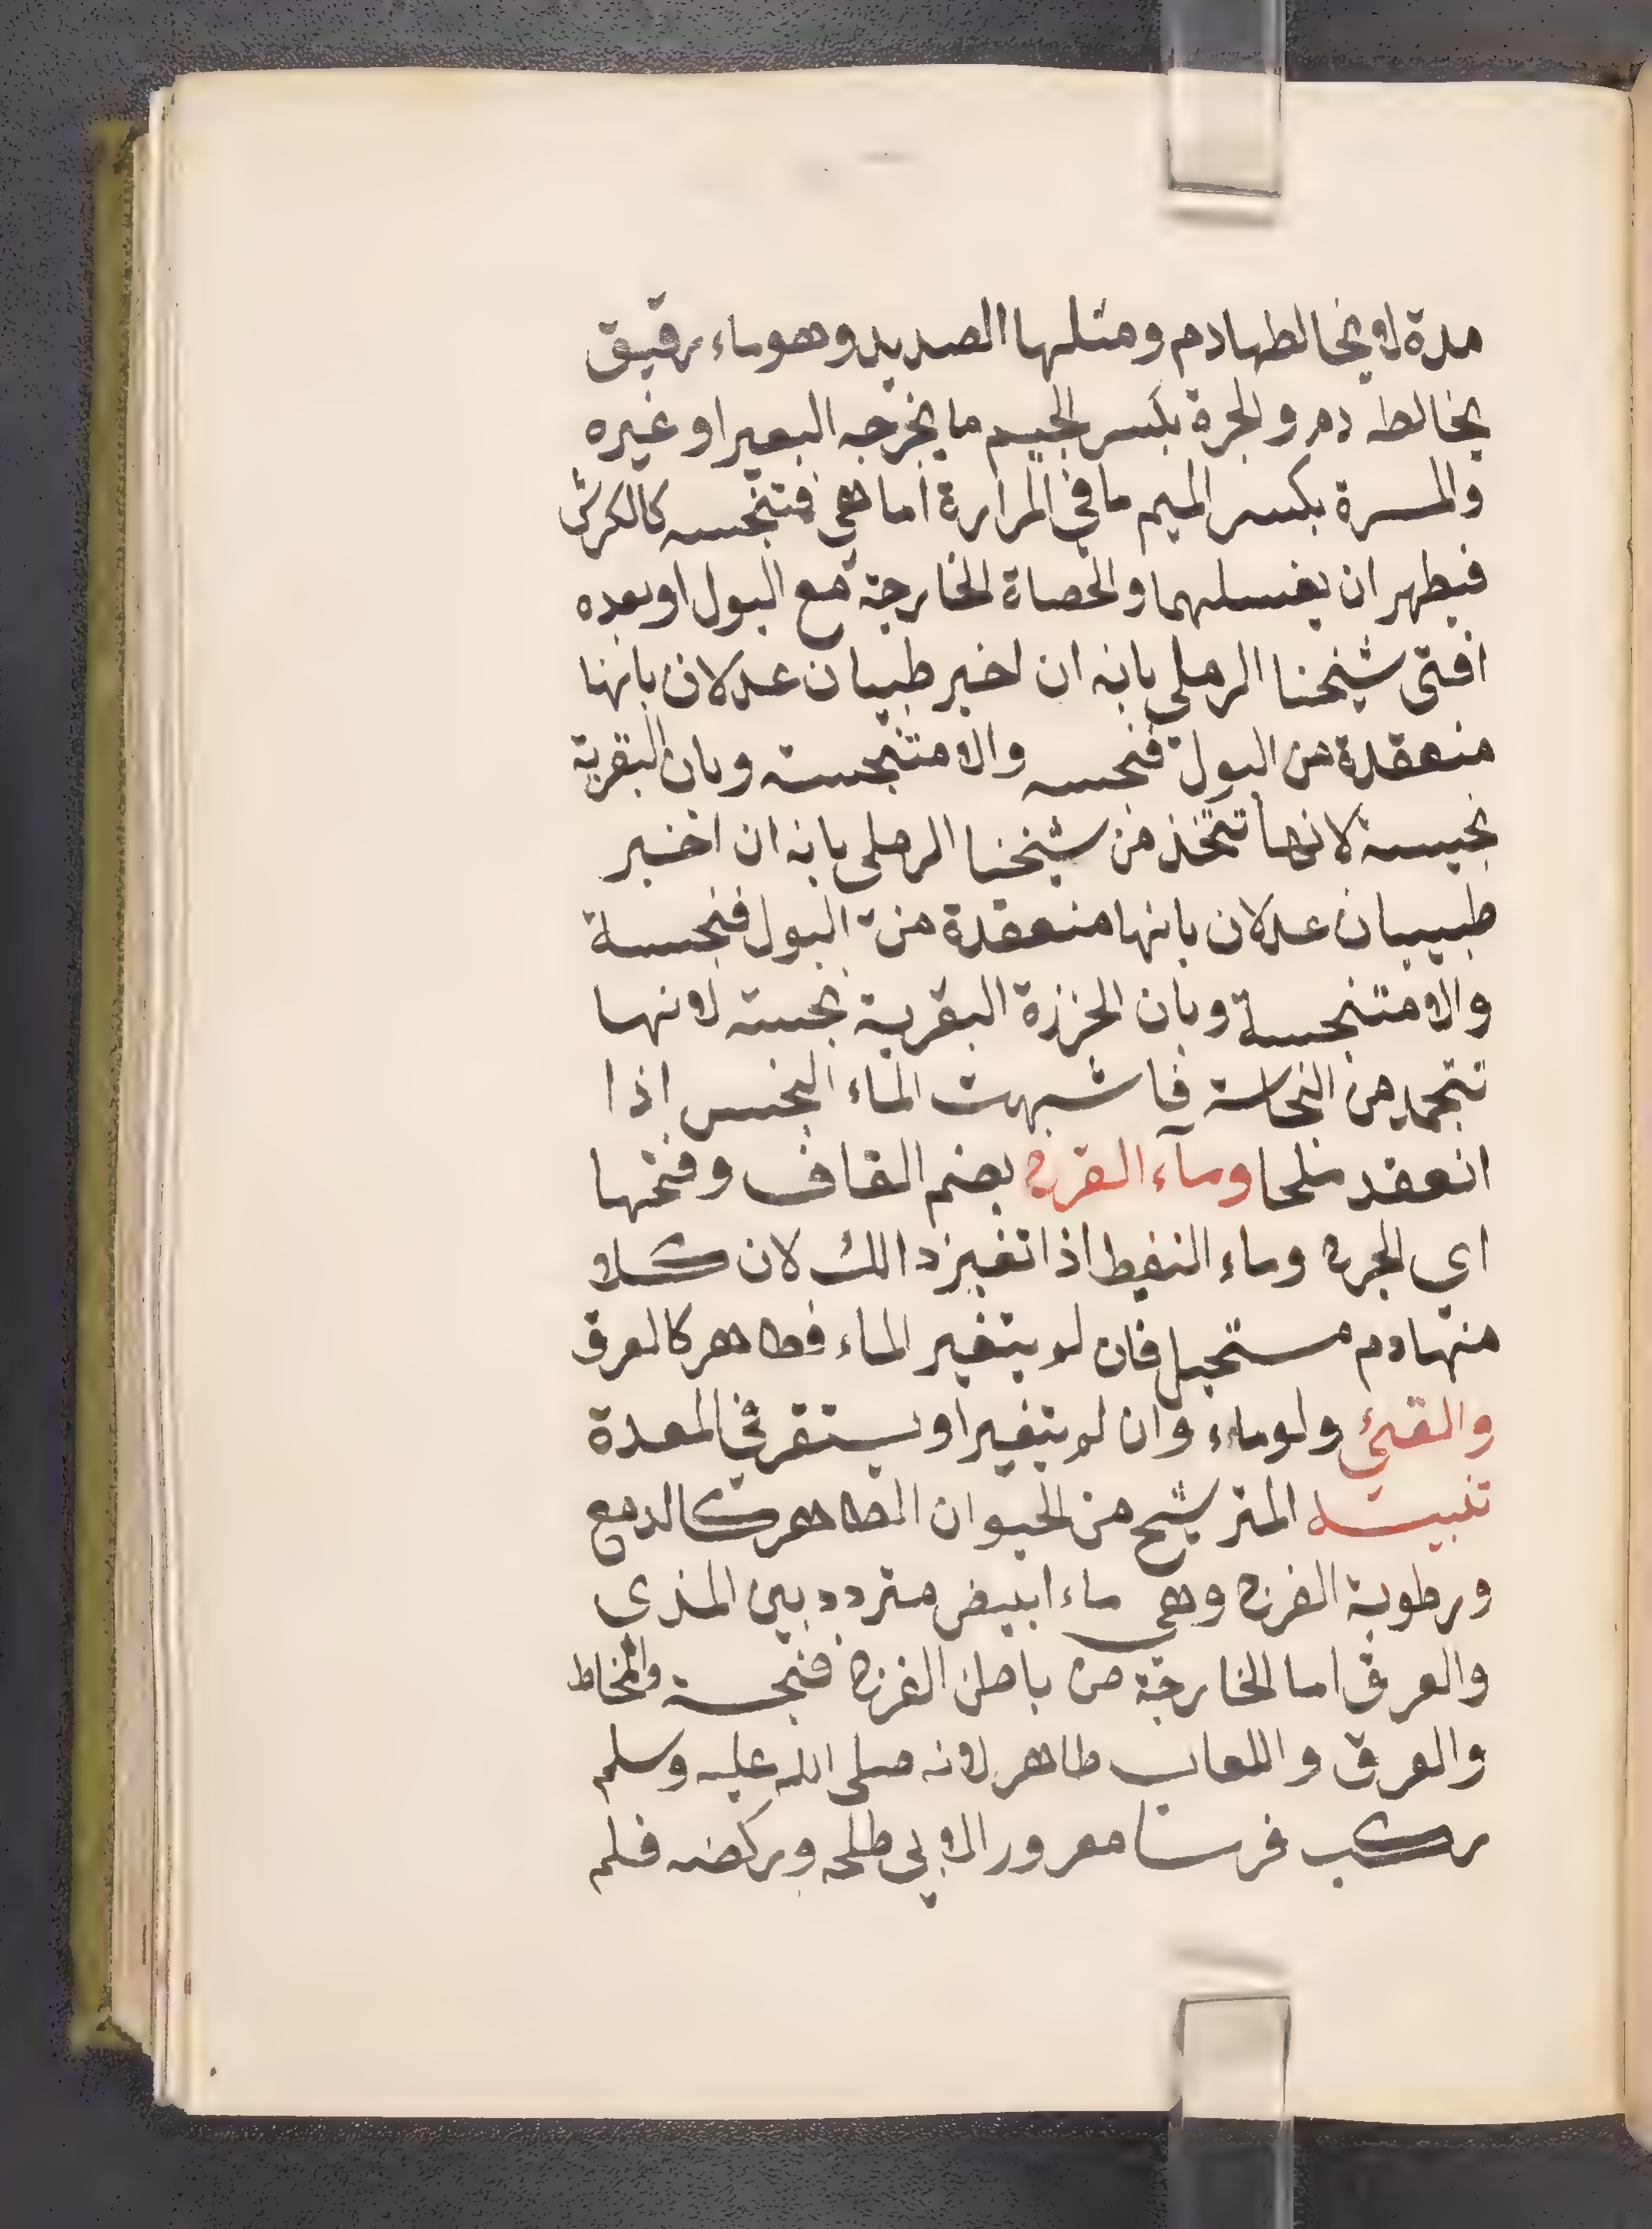 مدة لا يخالطها دم ومثلها الصديد وهو ماء رقيق
يخالطه دم والجرة بكسر الجيم ما يخرجه البعير او غيره
والمسرة بكسر الميم ما في المرارة اما هي فمتنجسه كالكرش
فيطهر ان يغسلهما والحصاة الخارجة مع البول او بعده
افتى شيخنا الرملي بانه ان اخبر طبيبان عدلان بانها
منعقدة من البول فنجسه والا متنجسة وبان البقرية
نجيسة لانها تتخذ من شيخنا الرملي بانه ان اخبر
طبيبان عدلان بانها منعقدة من البول فنجسة
والا متنجسة وبان الخرزة البقرية نجسة لانها
تتجمد من النجاسة فاشبهت الماء النجس اذا
انعقد ملحا وماء القرح بضم القاف وفتحها
اي الجرح وماء النفيط اذا تغير ذالك لان كلا
منها دم مستحيل فان لم يتغير الماء فطاهر كالعرق
والقيئ ولو ماء وان لم يتغير او يستقر في المعدة
تنبيه المترشيح من الحيوان الطاهر كالدمع
ورطوبة الفرج وهي ماء ابيض متردد بين المذي
والعرق اما الخارجة من باطن الفرج فنجسة والمخاط
والعرق واللعاب طاهر لانه صلى الله عليه وسلم
ركب فرسا معرورا لابي طلحه وركضه فلم